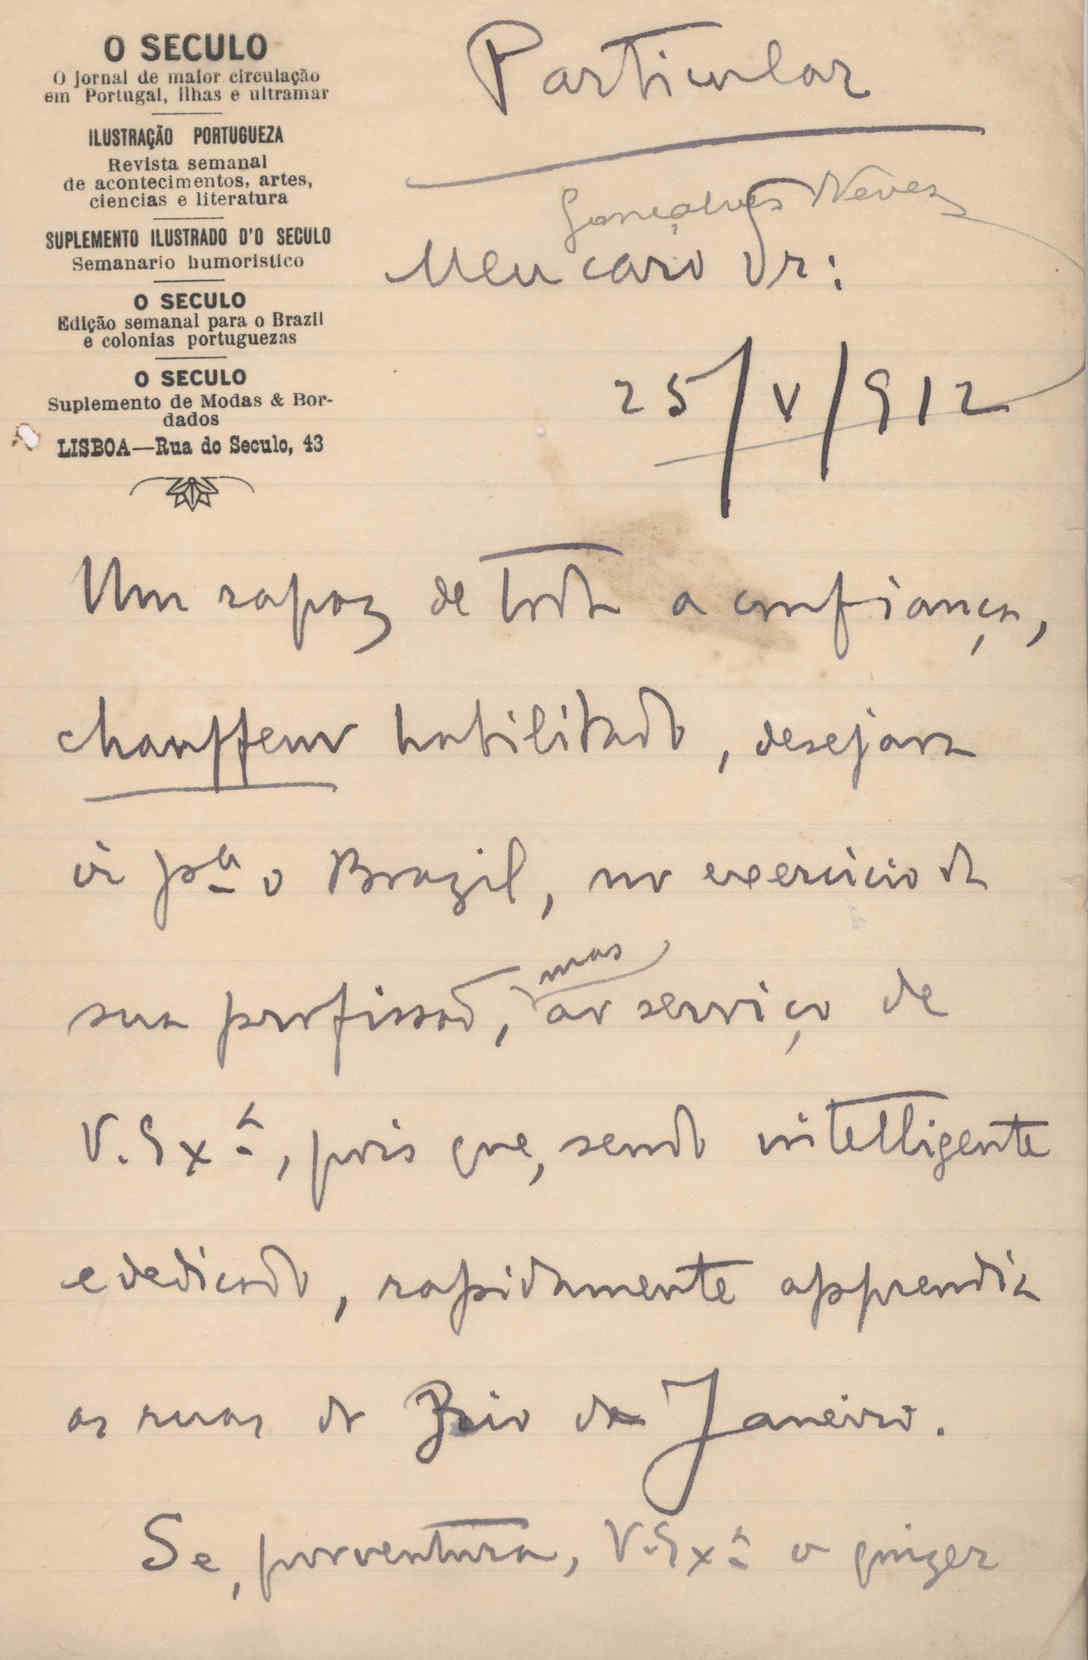 O SECULO
O jornal de maior circulação
em Portugal, ilhas e ultramar
ILUSTRAÇÃO PORTUGUEZA
Revista semanal
de acontecimentos, artes,
ciencias e literatura
SUPLEMENTO ILUSTRADO D'O SECULO
Semanario humoristico
O SECULO
Edição semanal para o Brazil
e colonias portuguezas
O SECULO
Suplemento de Modas & Bor-
dados
LISBOA—Rua do Seculo, 43
Particular
Gonçalves Neves
Meu caro Dr:
25/V/912
Um rapaz de toda a confiança,
chauffeur habilitado, desejava
ir pª o Brazil, no exercicio da
sua profissão, mas ao serviço de
V. Exª, pois que, sendo intelligente
e dedicado, rapidamente apprendia
as ruas do Rio de Janeiro.
Se, porventura, V. Exª o quizer